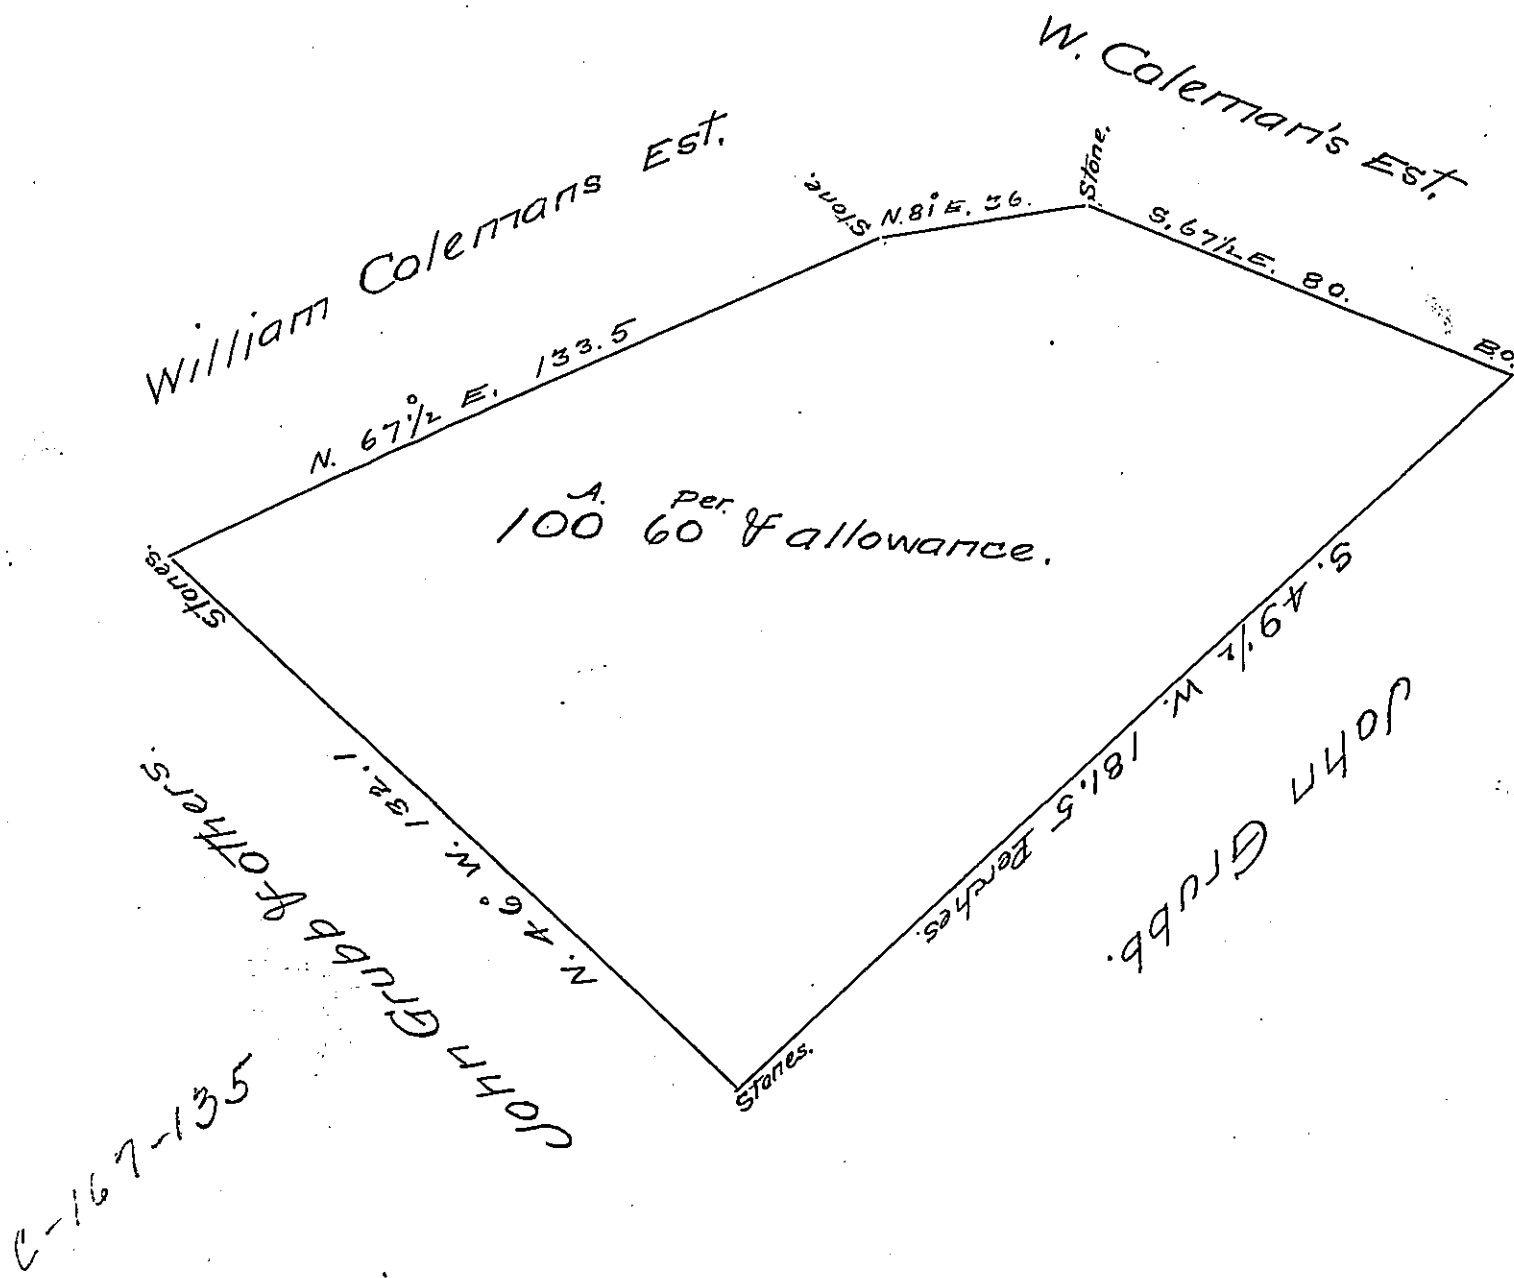 W. Coleman's Est.
William Colemans Est.
Stone.
N. 81° E. 36.
Stone.
S. 67 1/2 E. 80.
B.O.
N. 67 1/2° E. 133.5
100 A. 60 per. & allowance.
Stones.
S. 49 1/2 W. 181.5 Perches.
John Grubb.
N. 46° W. 132.1
John Grubb & others.
Stones.
C-167-135